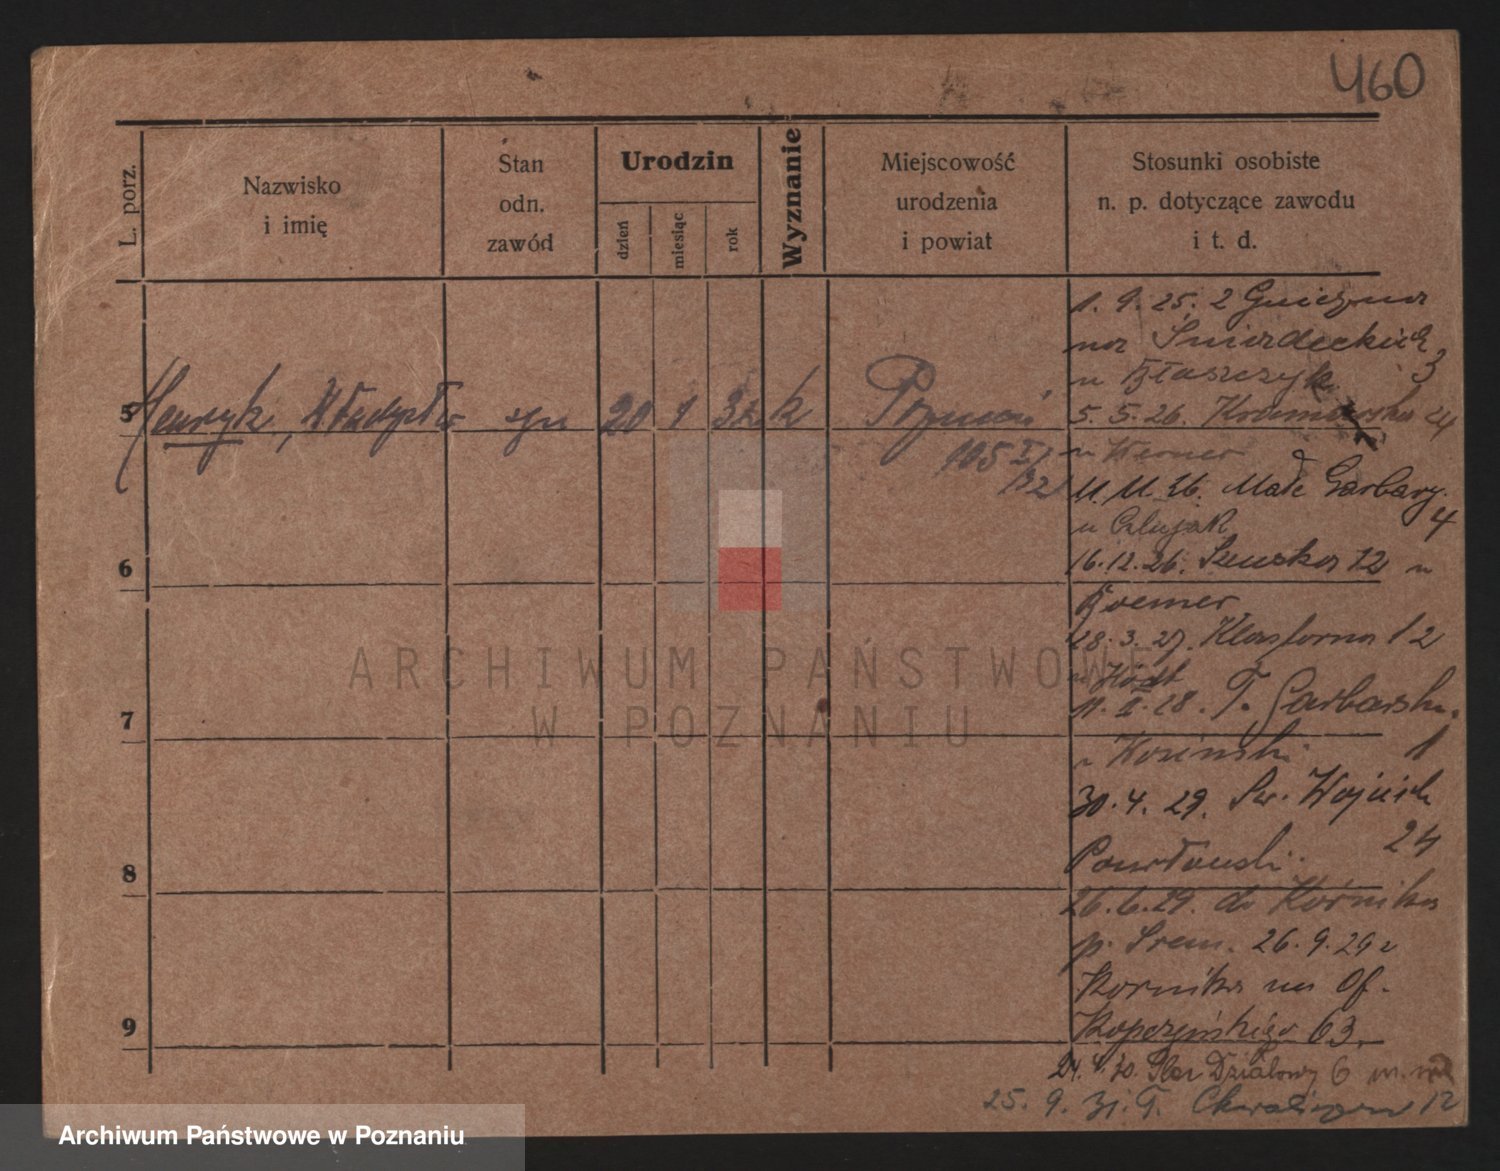 460
L. porz.
Nazwisko
i imię
Stan
odn.
zawód
Urodzin
dzień
miesiąc
rok
Wyznanie
Miejscowość
urodzenia
i powiat
Stosunki osobiste
n. p. dotyczące zawodu
i t. d.
5 Henryk, syn 20 1 32 k Poznań
105 I/32
6
7
8
9
1. 9. 25. z Gniezna
na 3
u Błaszczyk
5. 5. 26. Kramarska 24
u Werner
11. 11. 26. Małe Garbary
4
u
16. 12. 26. 12 u
28. 3. 27. Klasztorna 12
11. II. 28. T. Garbarska
1
30. 4. 29. Św. Wojciech
24
Pawłowski
26. 6. 29. do Kórnika
p. Śrem. 26. 9. 29 z
Kórnika na
63.
24. 4. 30. Plac Działowy 6
25. 9. 31. T. Chwaliszewo 12
ARCHIWUM PAŃSTWOWE
W POZNANIU
Archiwum Państwowe w Poznaniu